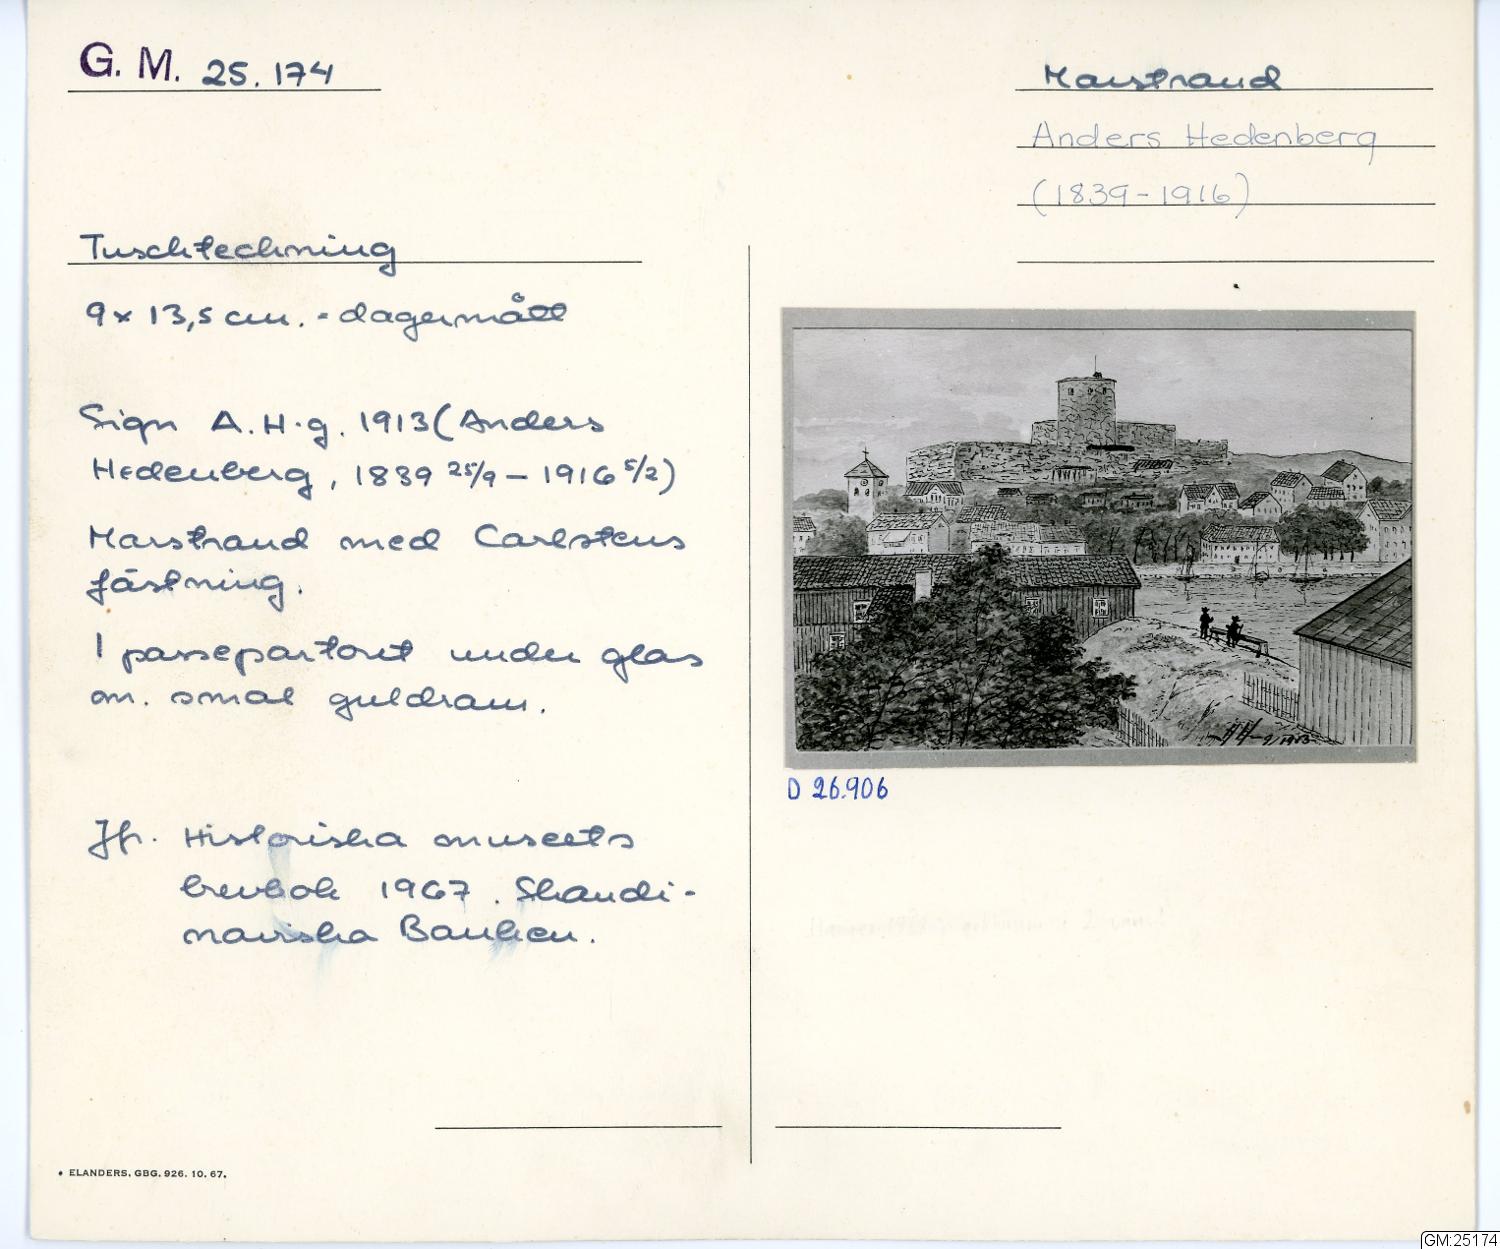 G. M. 25.174
Marstrand
Anders Hedenberg
(1839-1916)
Tuschteckning
9 x 13,5 cm. - dagermått
Sign A. H-g. 1913 (Anders
Hedenberg, 1839 25/9 - 1916 5/2)
Marstrand med Carlstens
fästning.
I passepartout under glas
m. smal guldram.
Jfr. Historiska museets
brevbok 1967. Skandi-
naviska Banken.
AH-g 1913
D 26.906
• ELANDERS. GBG. 926. 10. 67.
GM:25174